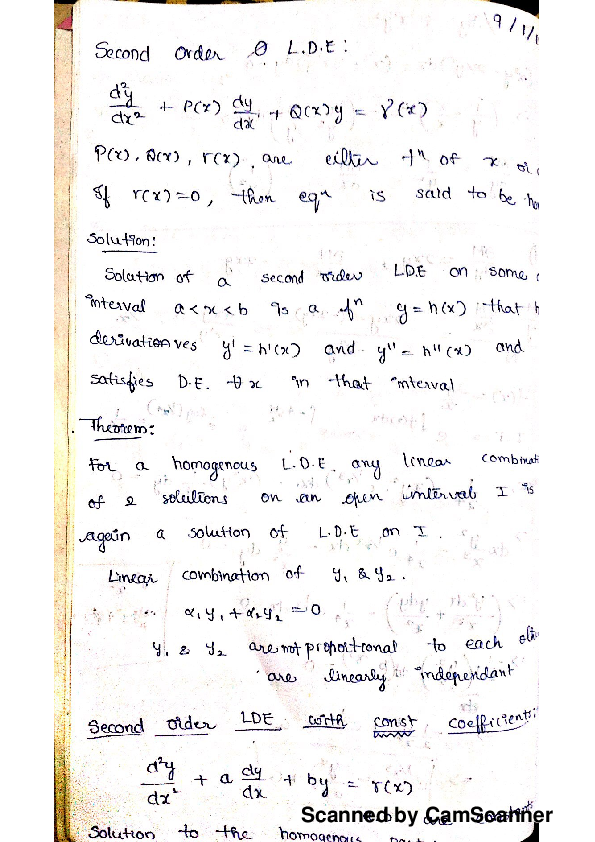 9/1/1
Second order L.D.E :
d²y/dx² + P(x) dy/dx + Q(x)y = r(x)
P(x), Q(x), r(x), are either fⁿ of x. or
If r(x)=0, then eqⁿ is said to be
Solution:
Solution of a second order LDE on some
interval a<x<b is a fⁿ y=h(x) that h
derivationves y'=h'(x) and y''=h''(x) and
satisfies D.E. ∀x in that interval
Theorem:
For a homogenous L.D.E. any linear combinat
of 2 solutions on an open interval I is
again a solution of L.D.E on I.
Linear combination of y₁ & y₂.
α₁y₁+α₂y₂=0
y₁ & y₂ are not proportional to each
are linearly independant
Second order LDE with const coefficients:
d²y/dx² + a dy/dx + by = r(x)
Scanned by CamScanner
Solution to the homogenous